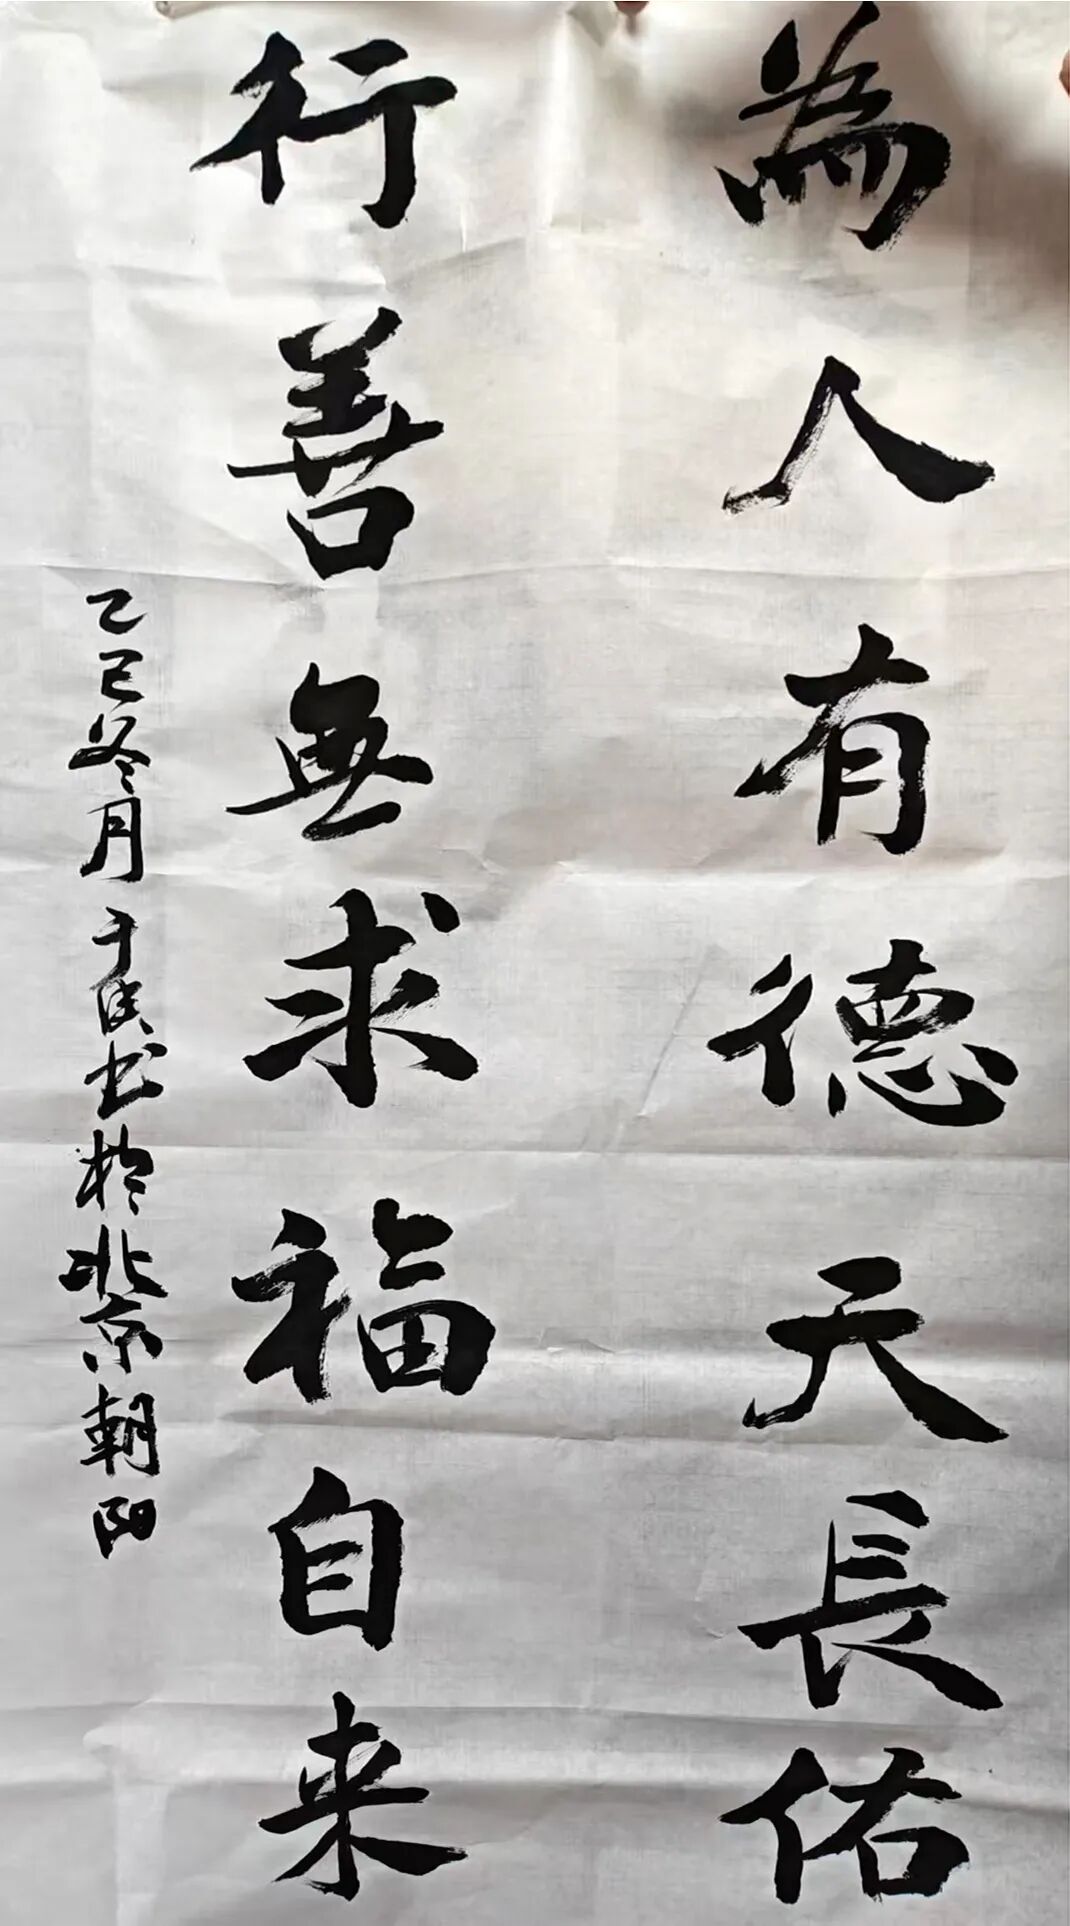 為人有德天長佑
行善無求福自来
乙巳冬月于民书於北京朝阳